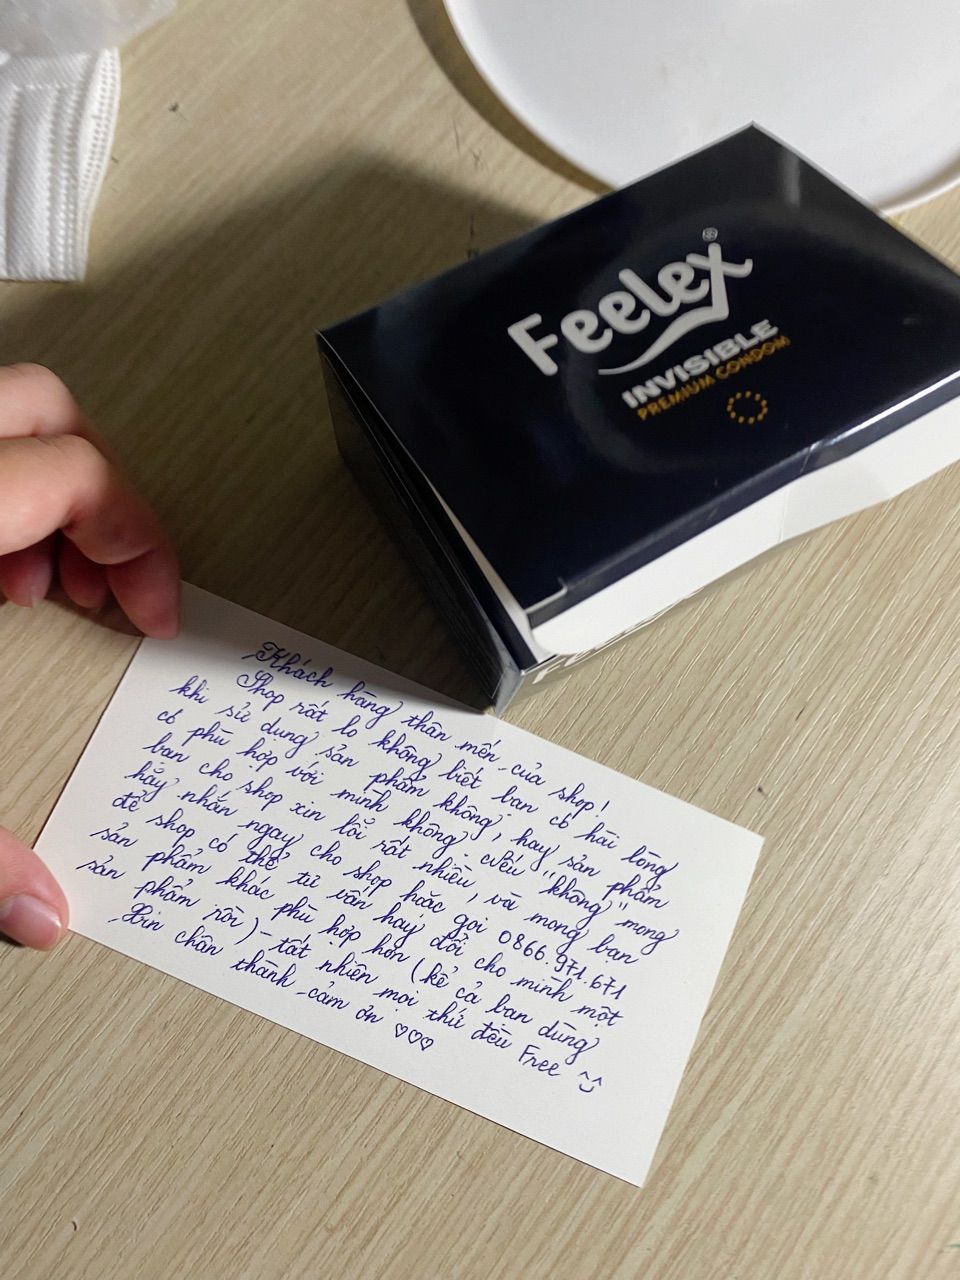 Feelex®
INVISIBLE
PREMIUM CONDOM
Khách hàng thân mến của shop!
Shop rất lo không biết bạn có hài lòng
khi sử dụng sản phẩm không, hay sản phẩm
có phù hợp với mình không. Nếu "không" mong
bạn cho shop xin lỗi rất nhiều, và mong bạn
hãy nhắn ngay cho shop hoặc gọi 0866.971.671
để shop có thể tư vấn hay đổi cho mình một
sản phẩm khác phù hợp hơn (kể cả bạn dùng
sản phẩm rồi) - tất nhiên mọi thứ đều Free ^^
Xin chân thành cảm ơn ♡♡♡